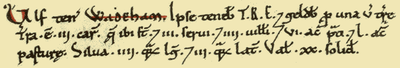 Ulf ten' Wadeham. Ipse teneb T.R.E. 7 geldb p una v 7 dim
Tra.e.iii.car. q ibi st.7 iii.serui.7 iiii.uill.7 vi.ac pti.7 l.ac
pasture. Silua.iiii.q lg.7 iii.q lat. Val.xx.solid.